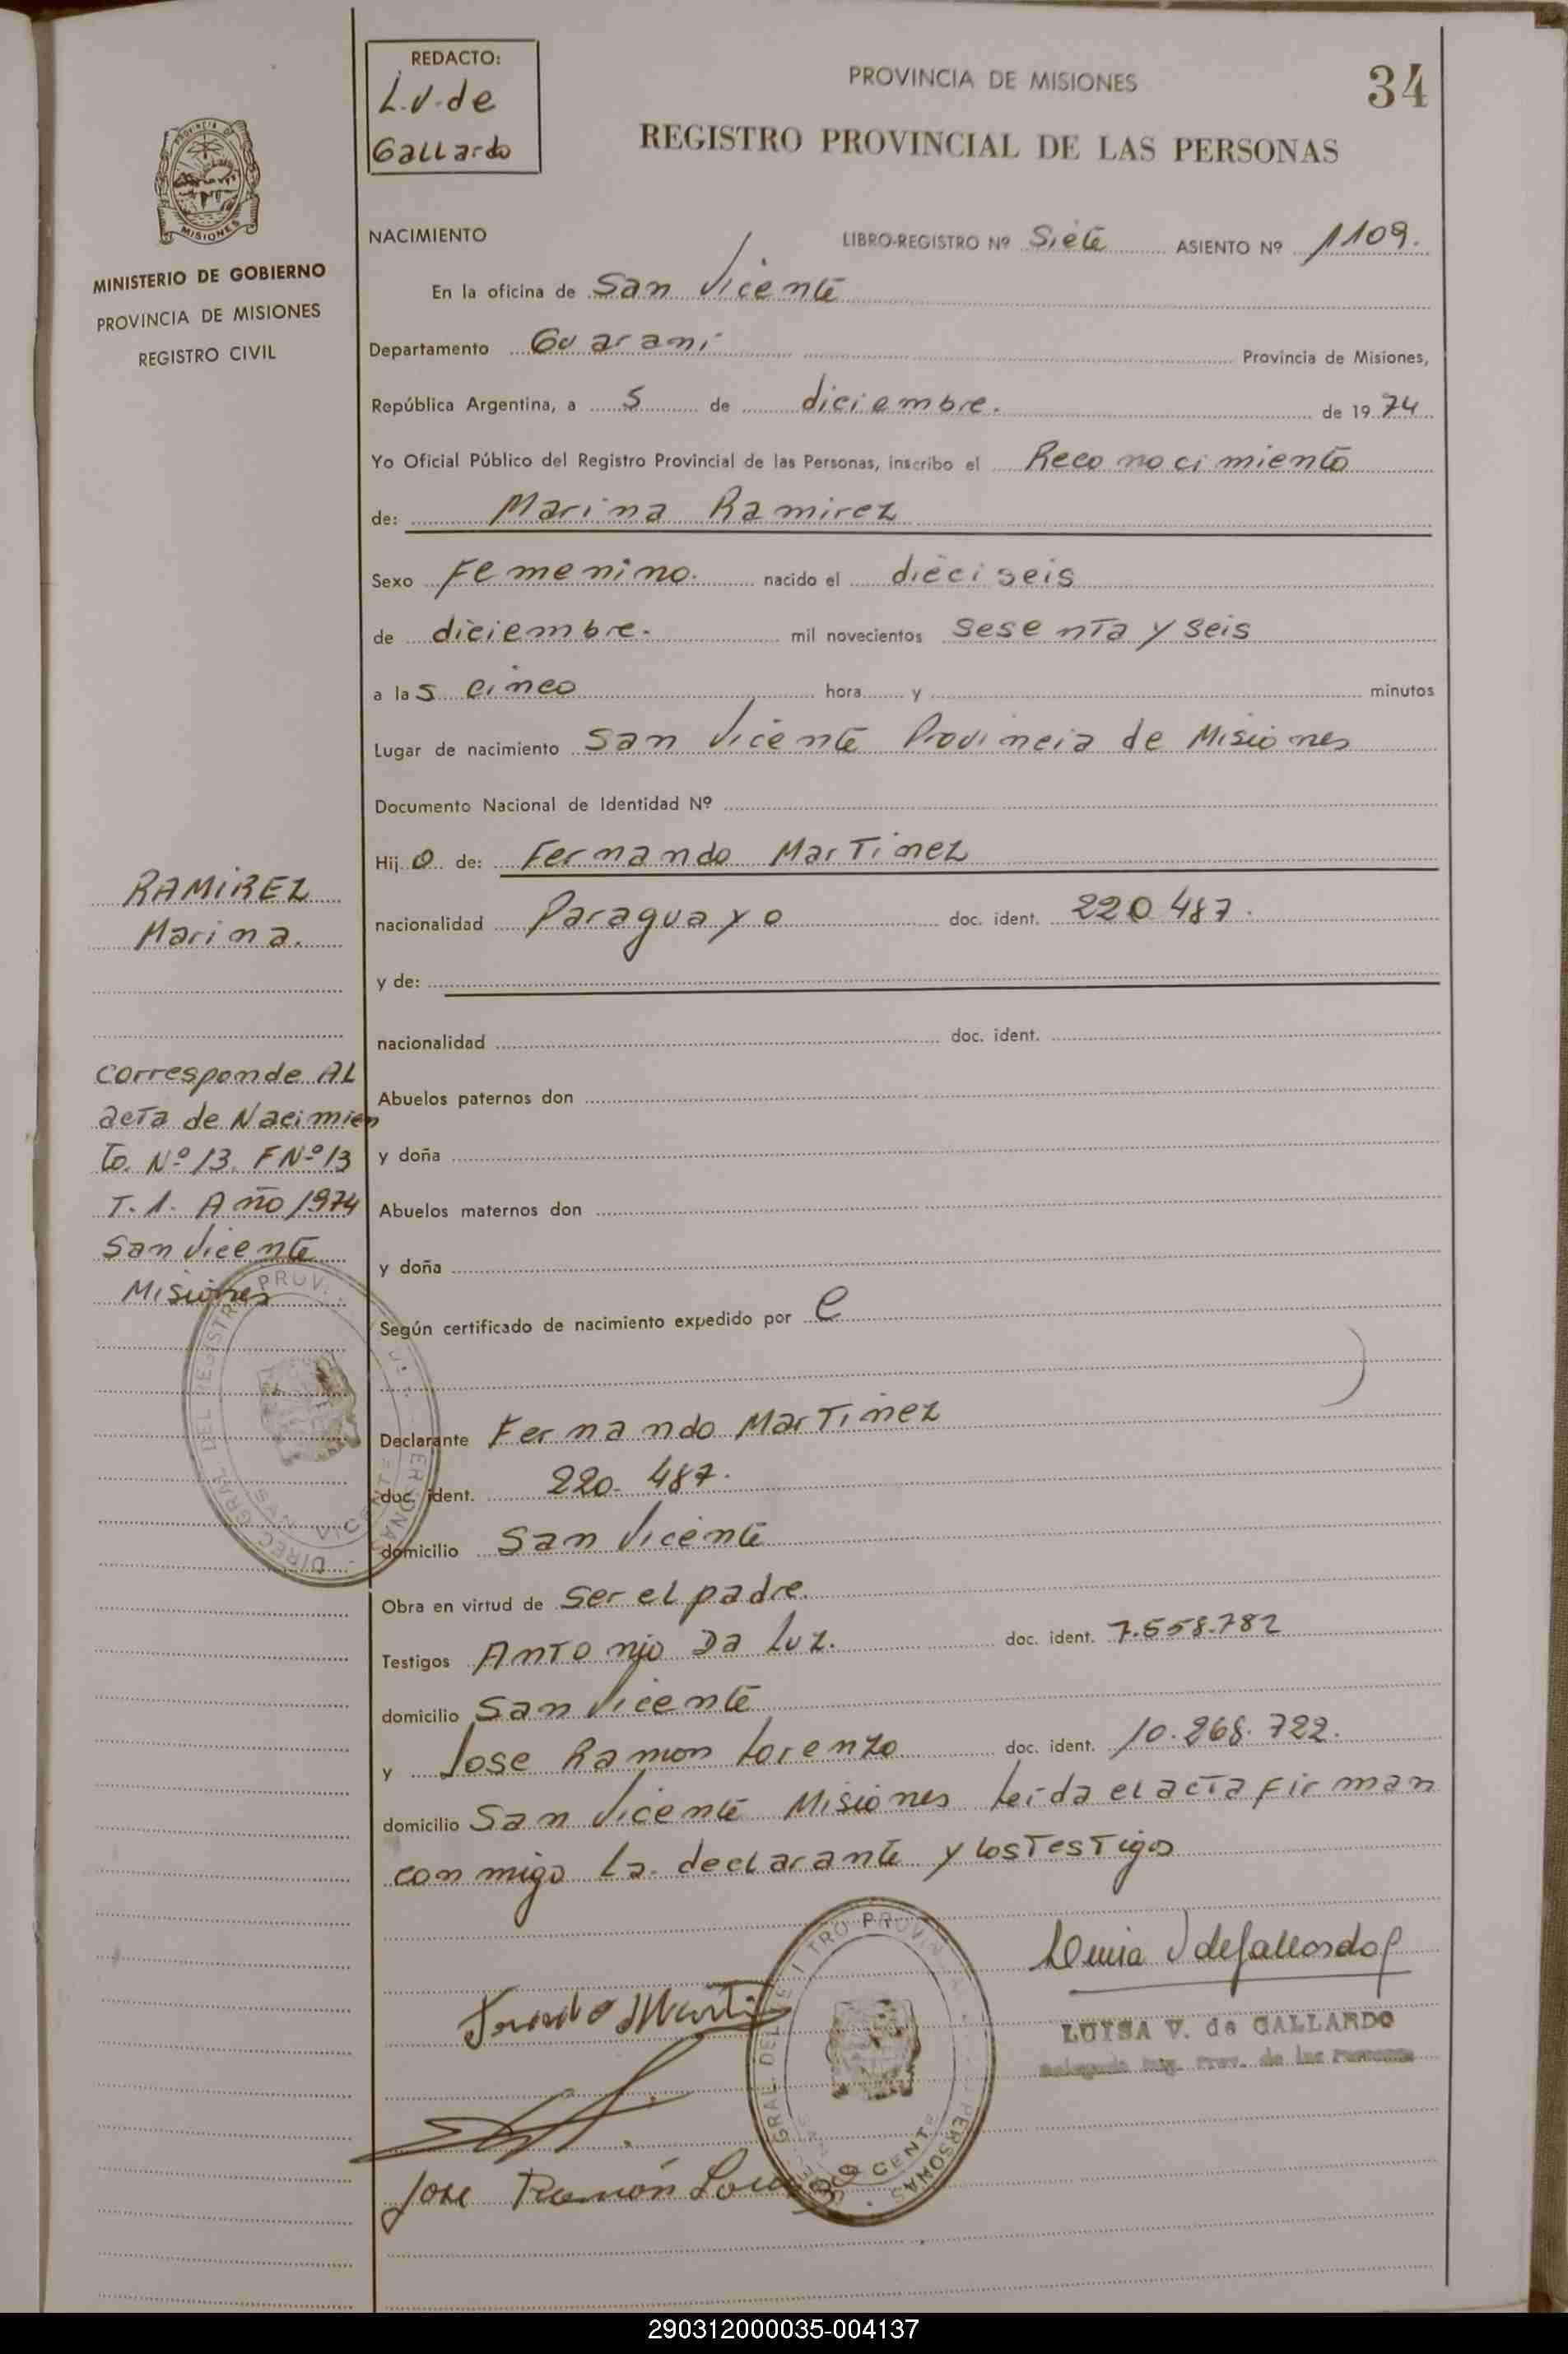 REDACTO:
L.V. de
Gallardo
PROVINCIA DE MISIONES
34
REGISTRO PROVINCIAL DE LAS PERSONAS
PROVINCIA DE
MISIONES
MINISTERIO DE GOBIERNO
PROVINCIA DE MISIONES
REGISTRO CIVIL
NACIMIENTO LIBRO-REGISTRO Nº Siete ASIENTO Nº 1109.
En la oficina de San Vicente
Departamento Guarani Provincia de Misiones,
República Argentina, a 5 de diciembre. de 1974
Yo Oficial Público del Registro Provincial de las Personas, inscribo el Reconocimiento
de: Marina Ramirez
Sexo Femenino. nacido el dieciseis
de diciembre. mil novecientos sesenta y seis
a las cinco hora y minutos
Lugar de nacimiento San Vicente Provincia de Misiones
Documento Nacional de Identidad Nº
Hijo de: Fernando Martinez
nacionalidad Paraguayo doc. ident. 220.487.
y de:
nacionalidad doc. ident.
Abuelos paternos don
y doña
Abuelos maternos don
y doña
Según certificado de nacimiento expedido por
Declarante Fernando Martinez
doc. ident. 220.487.
domicilio San Vicente
Obra en virtud de ser el padre.
Testigos Antonio Da Luz. doc. ident. 7.558.782
domicilio San Vicente
y Jose Ramon Lorenzo doc. ident. 10.268.722.
domicilio San Vicente Misiones leida el acta firman
conmigo la declarante y los testigos
RAMIREZ
Marina.
Corresponde AL
acta de Nacimien
to. Nº 13. F Nº 13
T. 1. Año 1974
San Vicente
Misiones
LUISA V. de GALLARDO
Delegada Reg. Prov. de las Personas
Jose Ramón
290312000035-004137